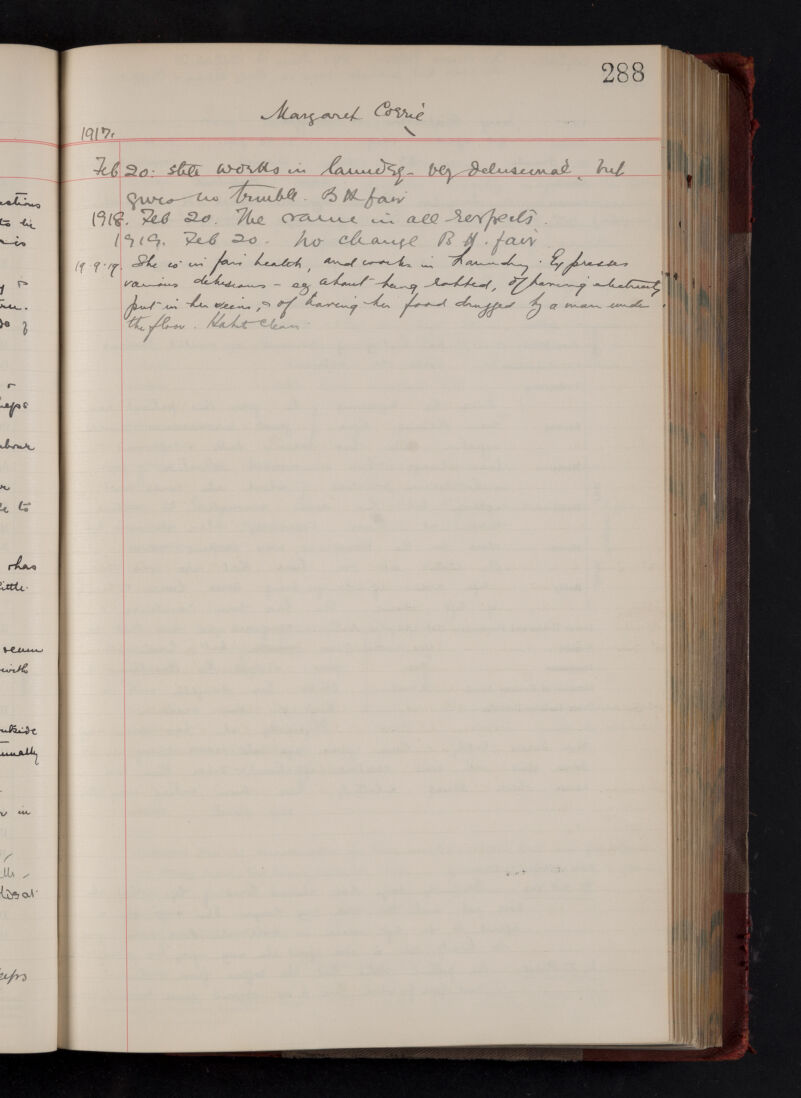 288
Margaret Corrie
1917.
Feb 20: still works in laundry - very delusional, but
gives no trouble. B H fair
1918. Feb 20. The same in all respects.
1919. Feb 20. No change B H. fair
19.9.19. She is in fair health, and works in laundry. Expresses
various delusions - eg about being robbed, of having electricity
put in her veins, & of having her food drugged by a man under
the floor. Habits clean.